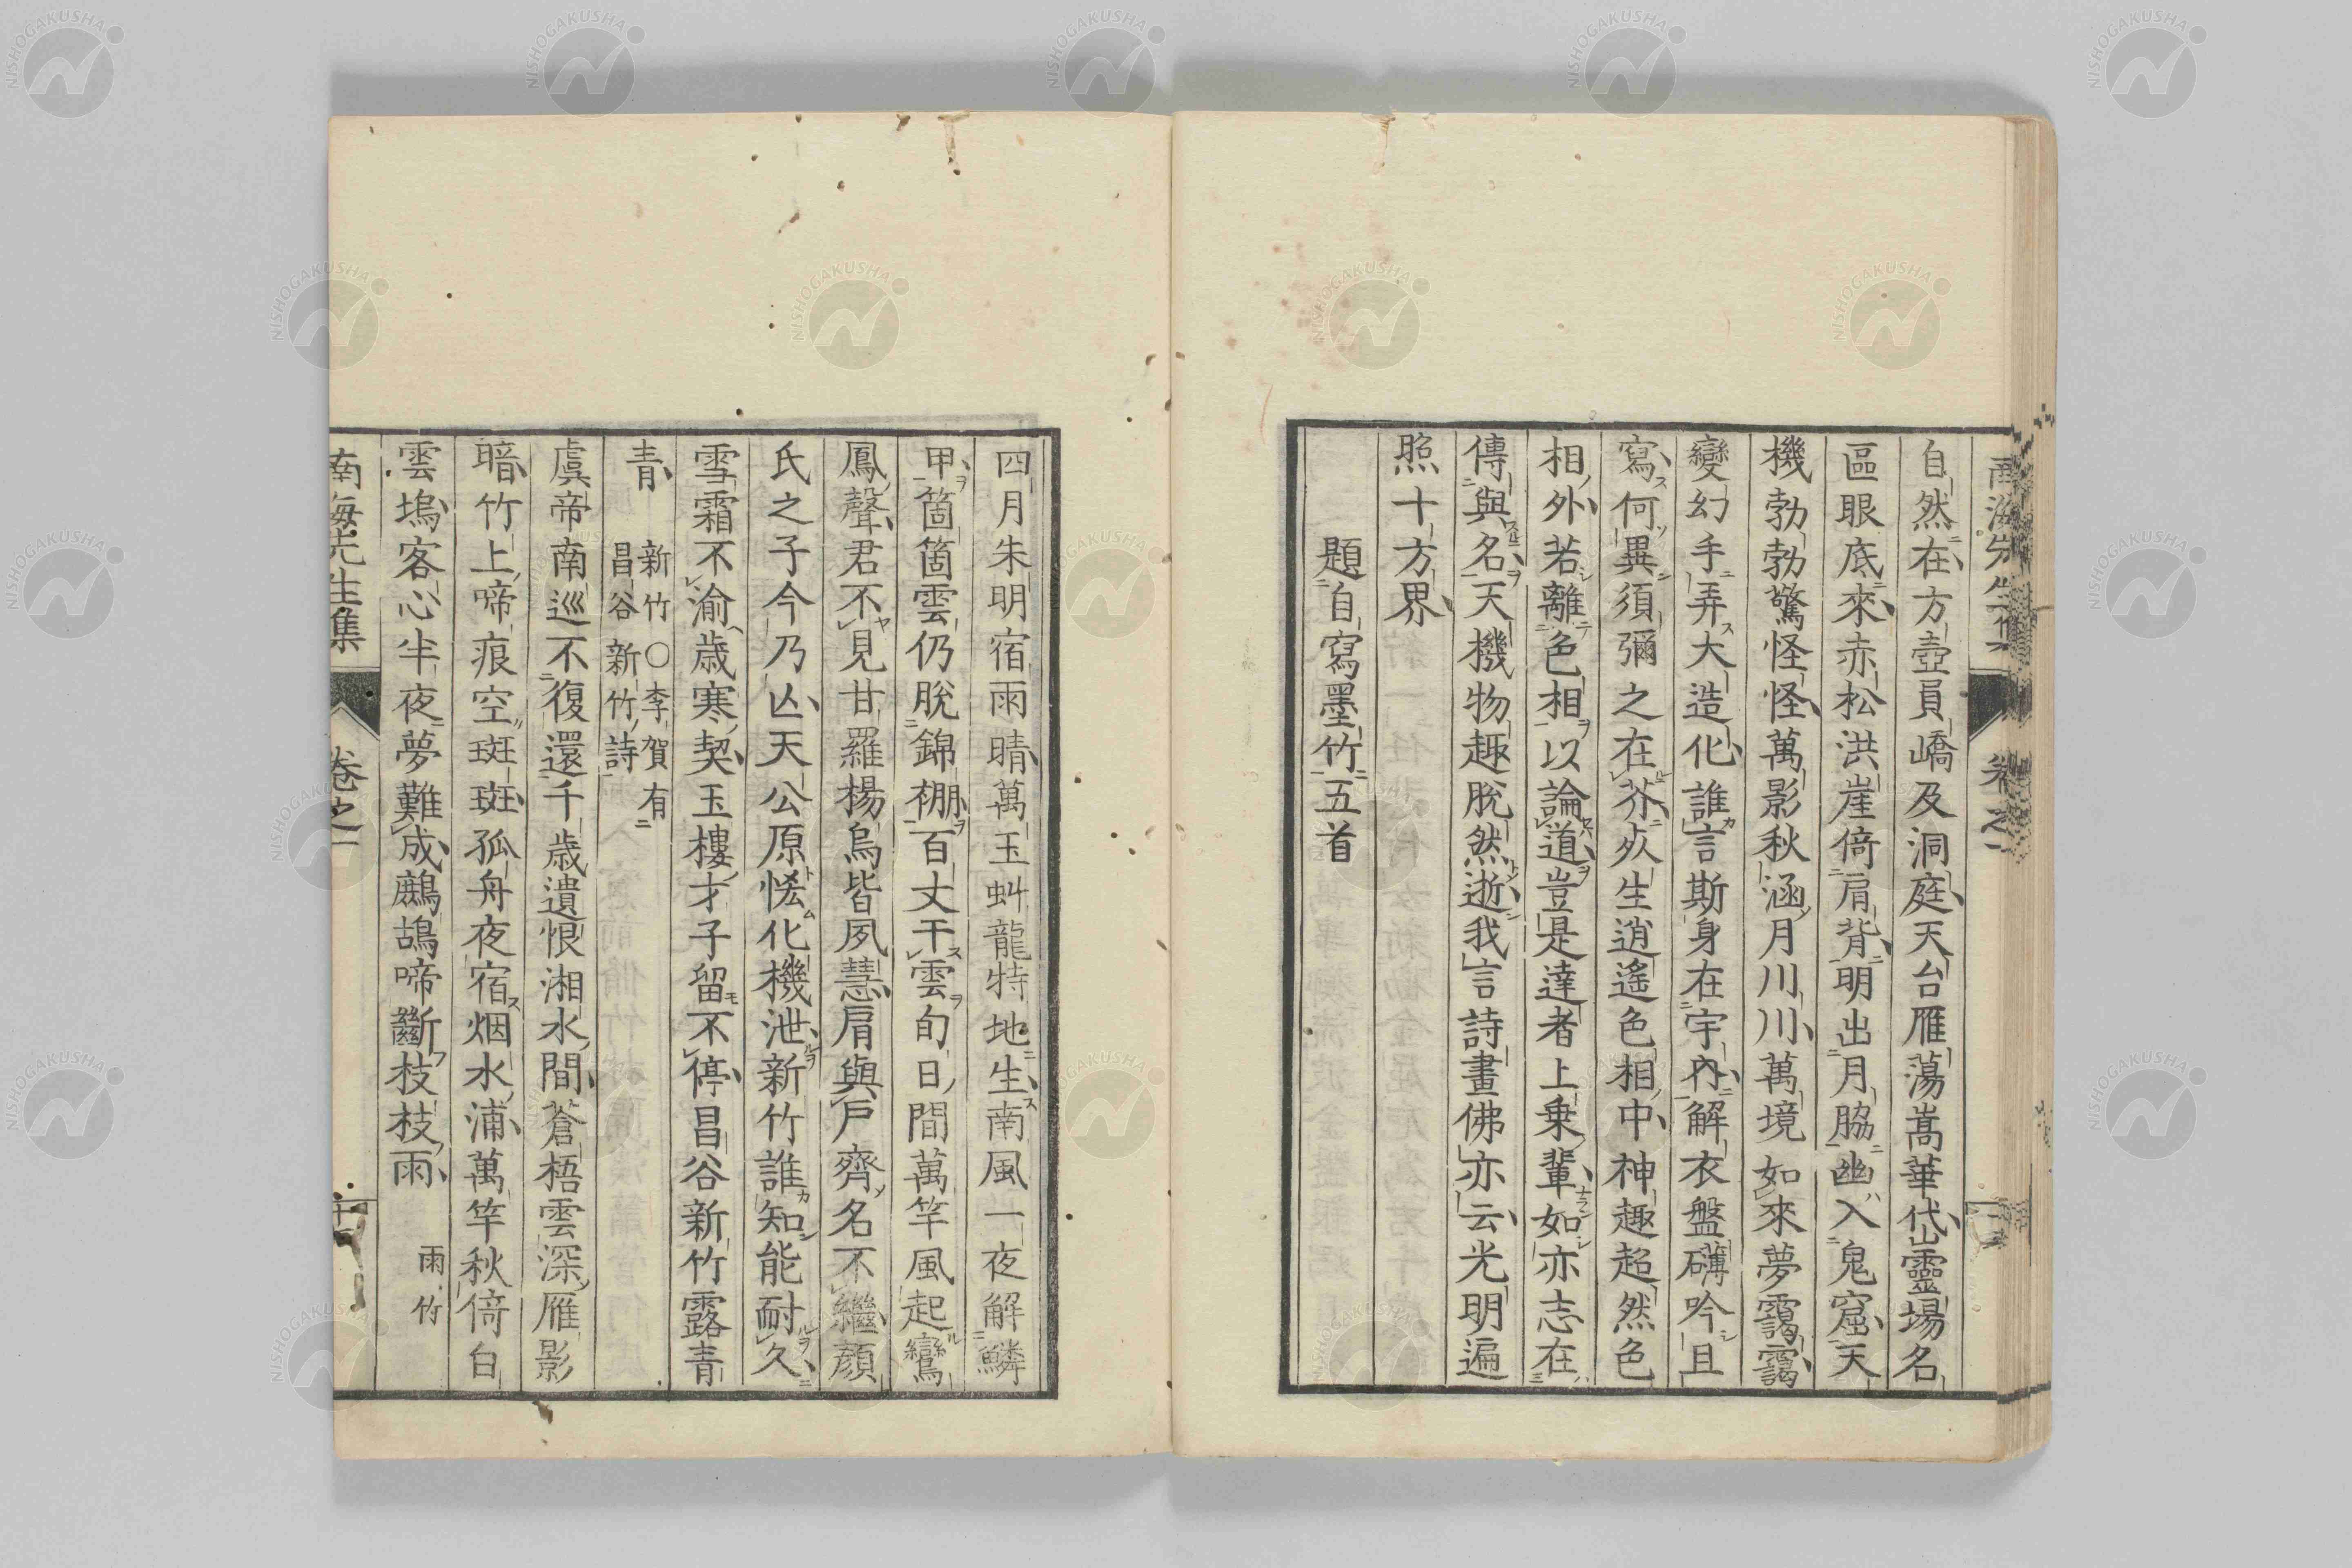 自然在方壺員嶠及洞庭天台雁蕩嵩華岱靈場名
區眼底來赤松洪崖倚肩背明出月脇幽入鬼窟天
機勃勃驚怪怪萬影秋涵月川川萬境如來夢靄靄
變幻手弄大造化誰言斯身在宇內解衣盤礴吟且
寫何異須彌之在芥夾生逍遙色相中神趣超然色
相外若離色相以論道豈是達者上乗輩如亦志在
傳與名天機物趣脫然逝我言詩畫佛亦云光明遍
照十方界
題自寫墨竹五首
四月朱明宿雨晴萬玉虯龍特地生南風一夜解鱗
甲箇箇雲仍脫錦棚百丈干雲旬日間萬竿風起鸞
鳳聲君不見甘羅楊烏皆夙慧肩與戶齊名不繼顏
氏之子今乃亾天公原恡化機泄新竹誰知能耐久
雪霜不渝歳寒契玉樓才子留不停昌谷新竹露青
青 新竹〇李賀有
昌谷新竹詩
虞帝南巡不復還千歳遺恨湘水間蒼梧雲深雁影
暗竹上啼痕空斑斑孤舟夜宿烟水浦萬竿秋倚白
雲塢客心半夜夢難成鷓鴣啼斷枝枝雨 雨竹
南海先生集 卷之一
NISHOGAKUSHA